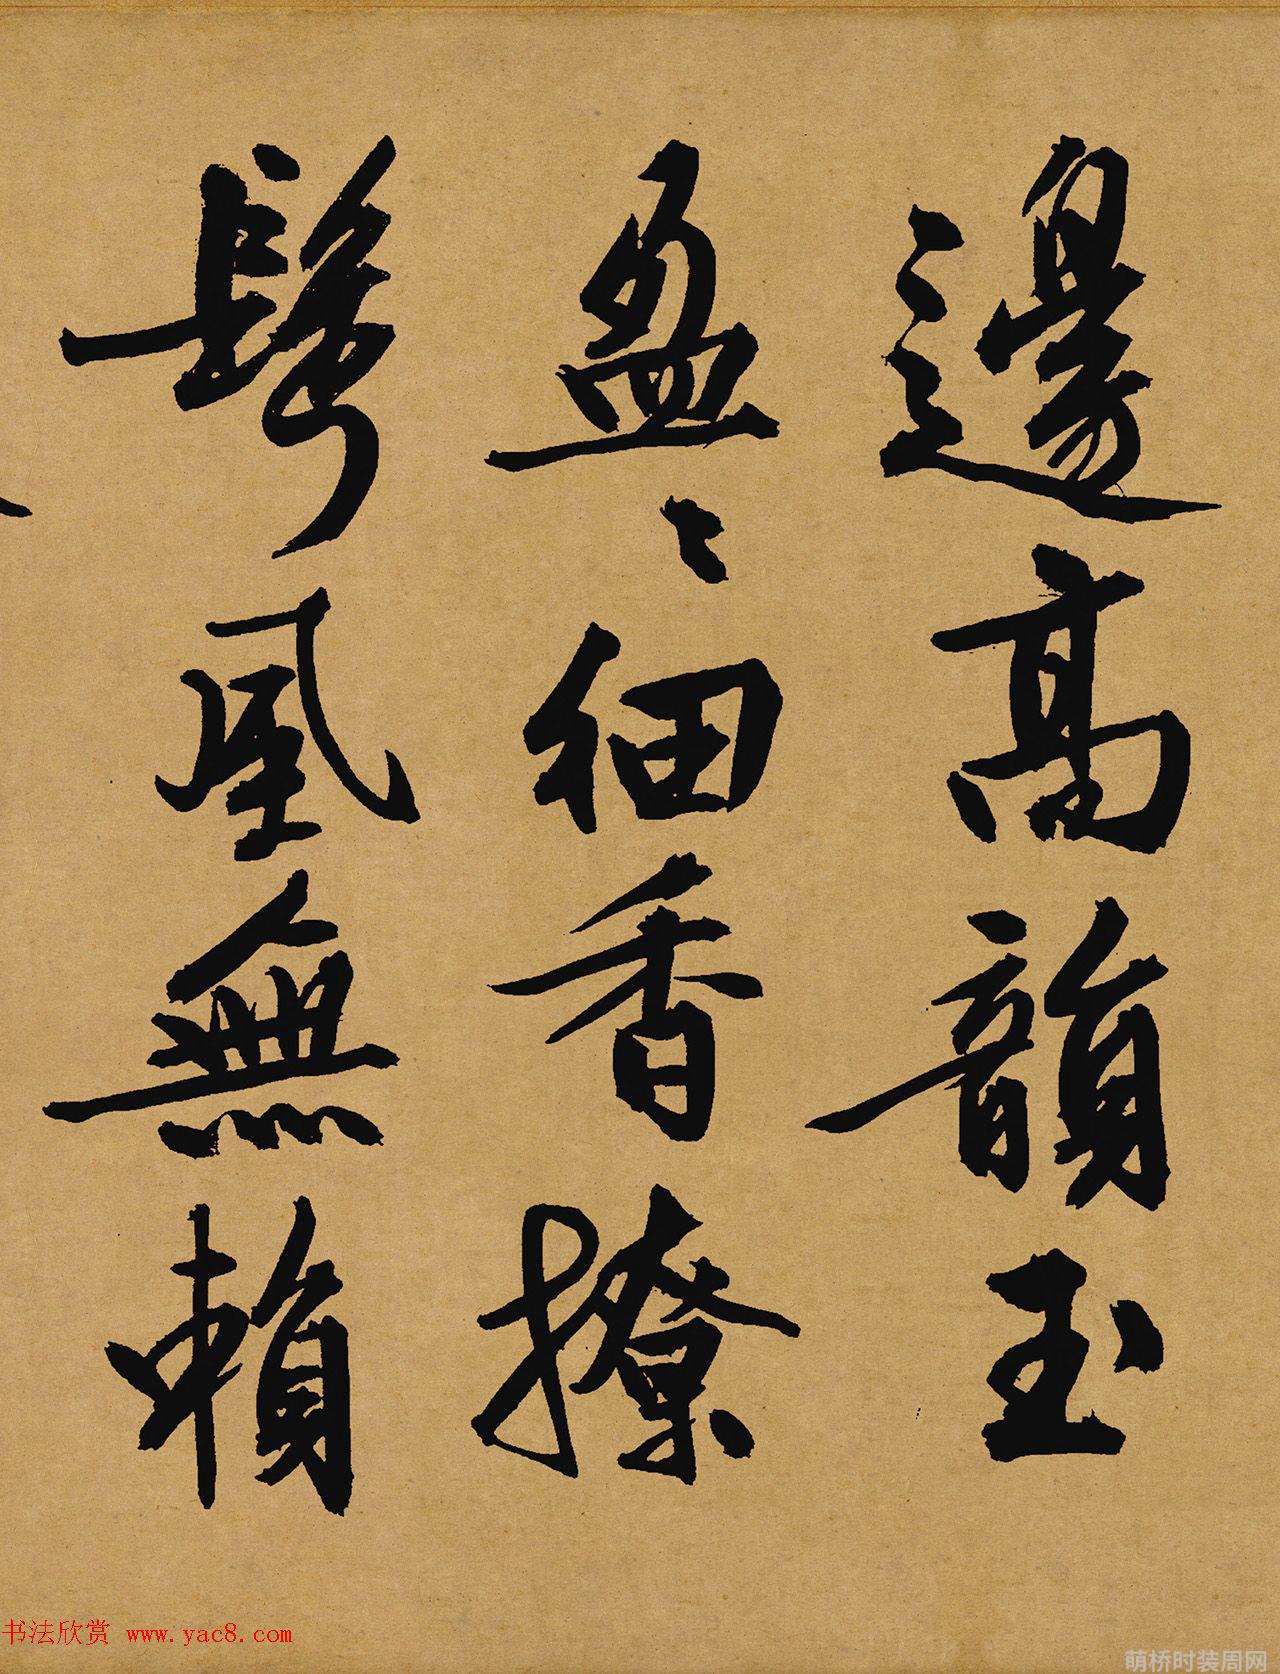 邊高韻玉
盈〻細香撩
鬢風無賴
书法欣赏 www.yac8.com
萌桥时装周网